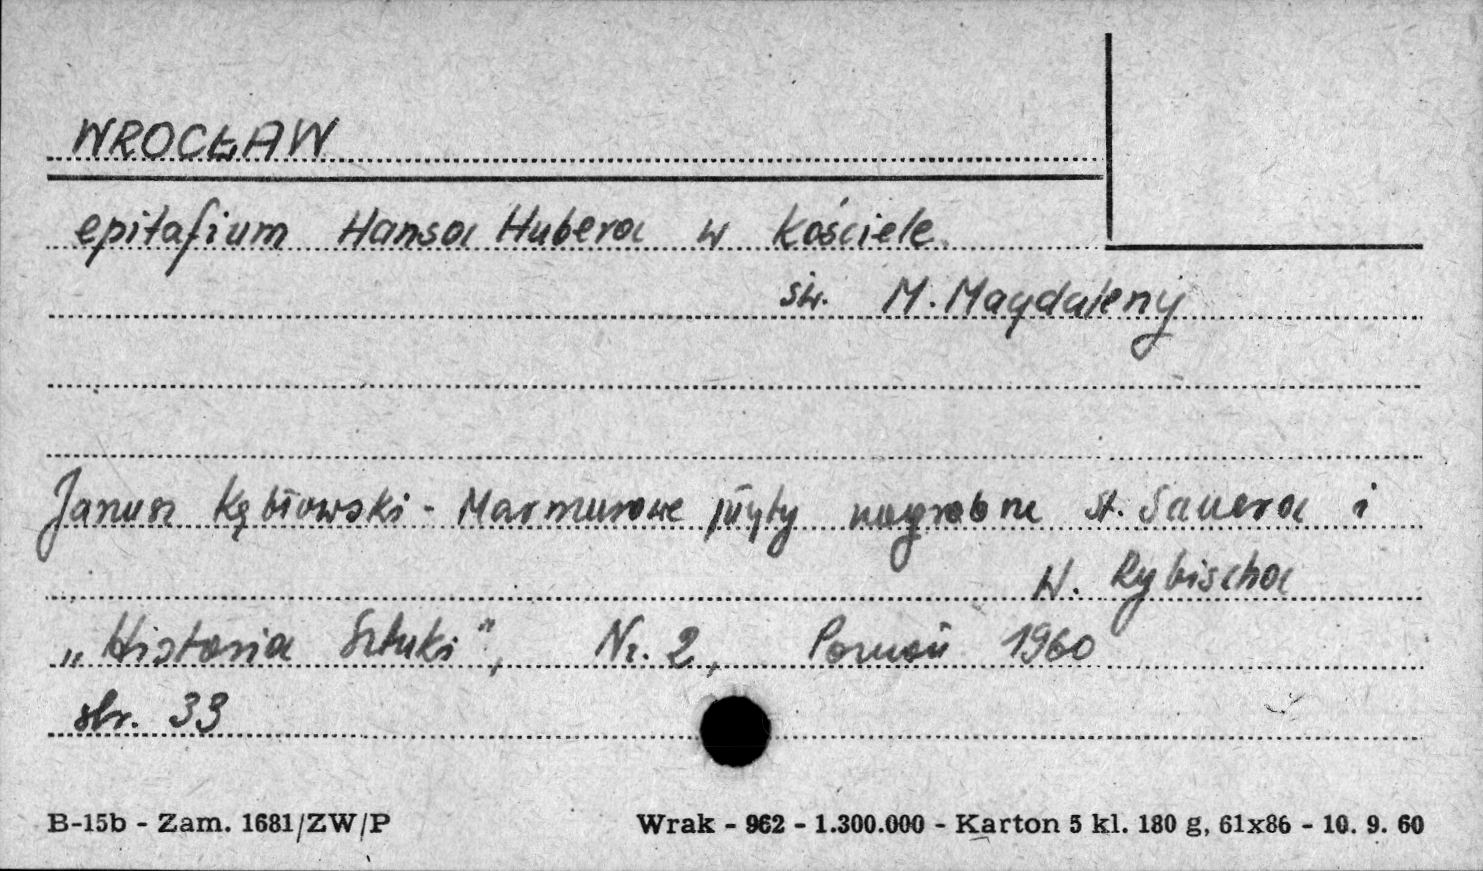 WROCŁAW
epitafium Hansa Hubera w kościele
św. M. Magdaleny
Janusz Kębłowski - Marmurowe płyty nagrobne St. Sauera i
H. Rybischa
„Historia Sztuki", Nr. 2, Poznań 1960
str. 33
B-15b - Zam. 1681/ZW/P
Wrak - 962 - 1.300.000 - Karton 5 kl. 180 g, 61x86 - 10. 9. 60